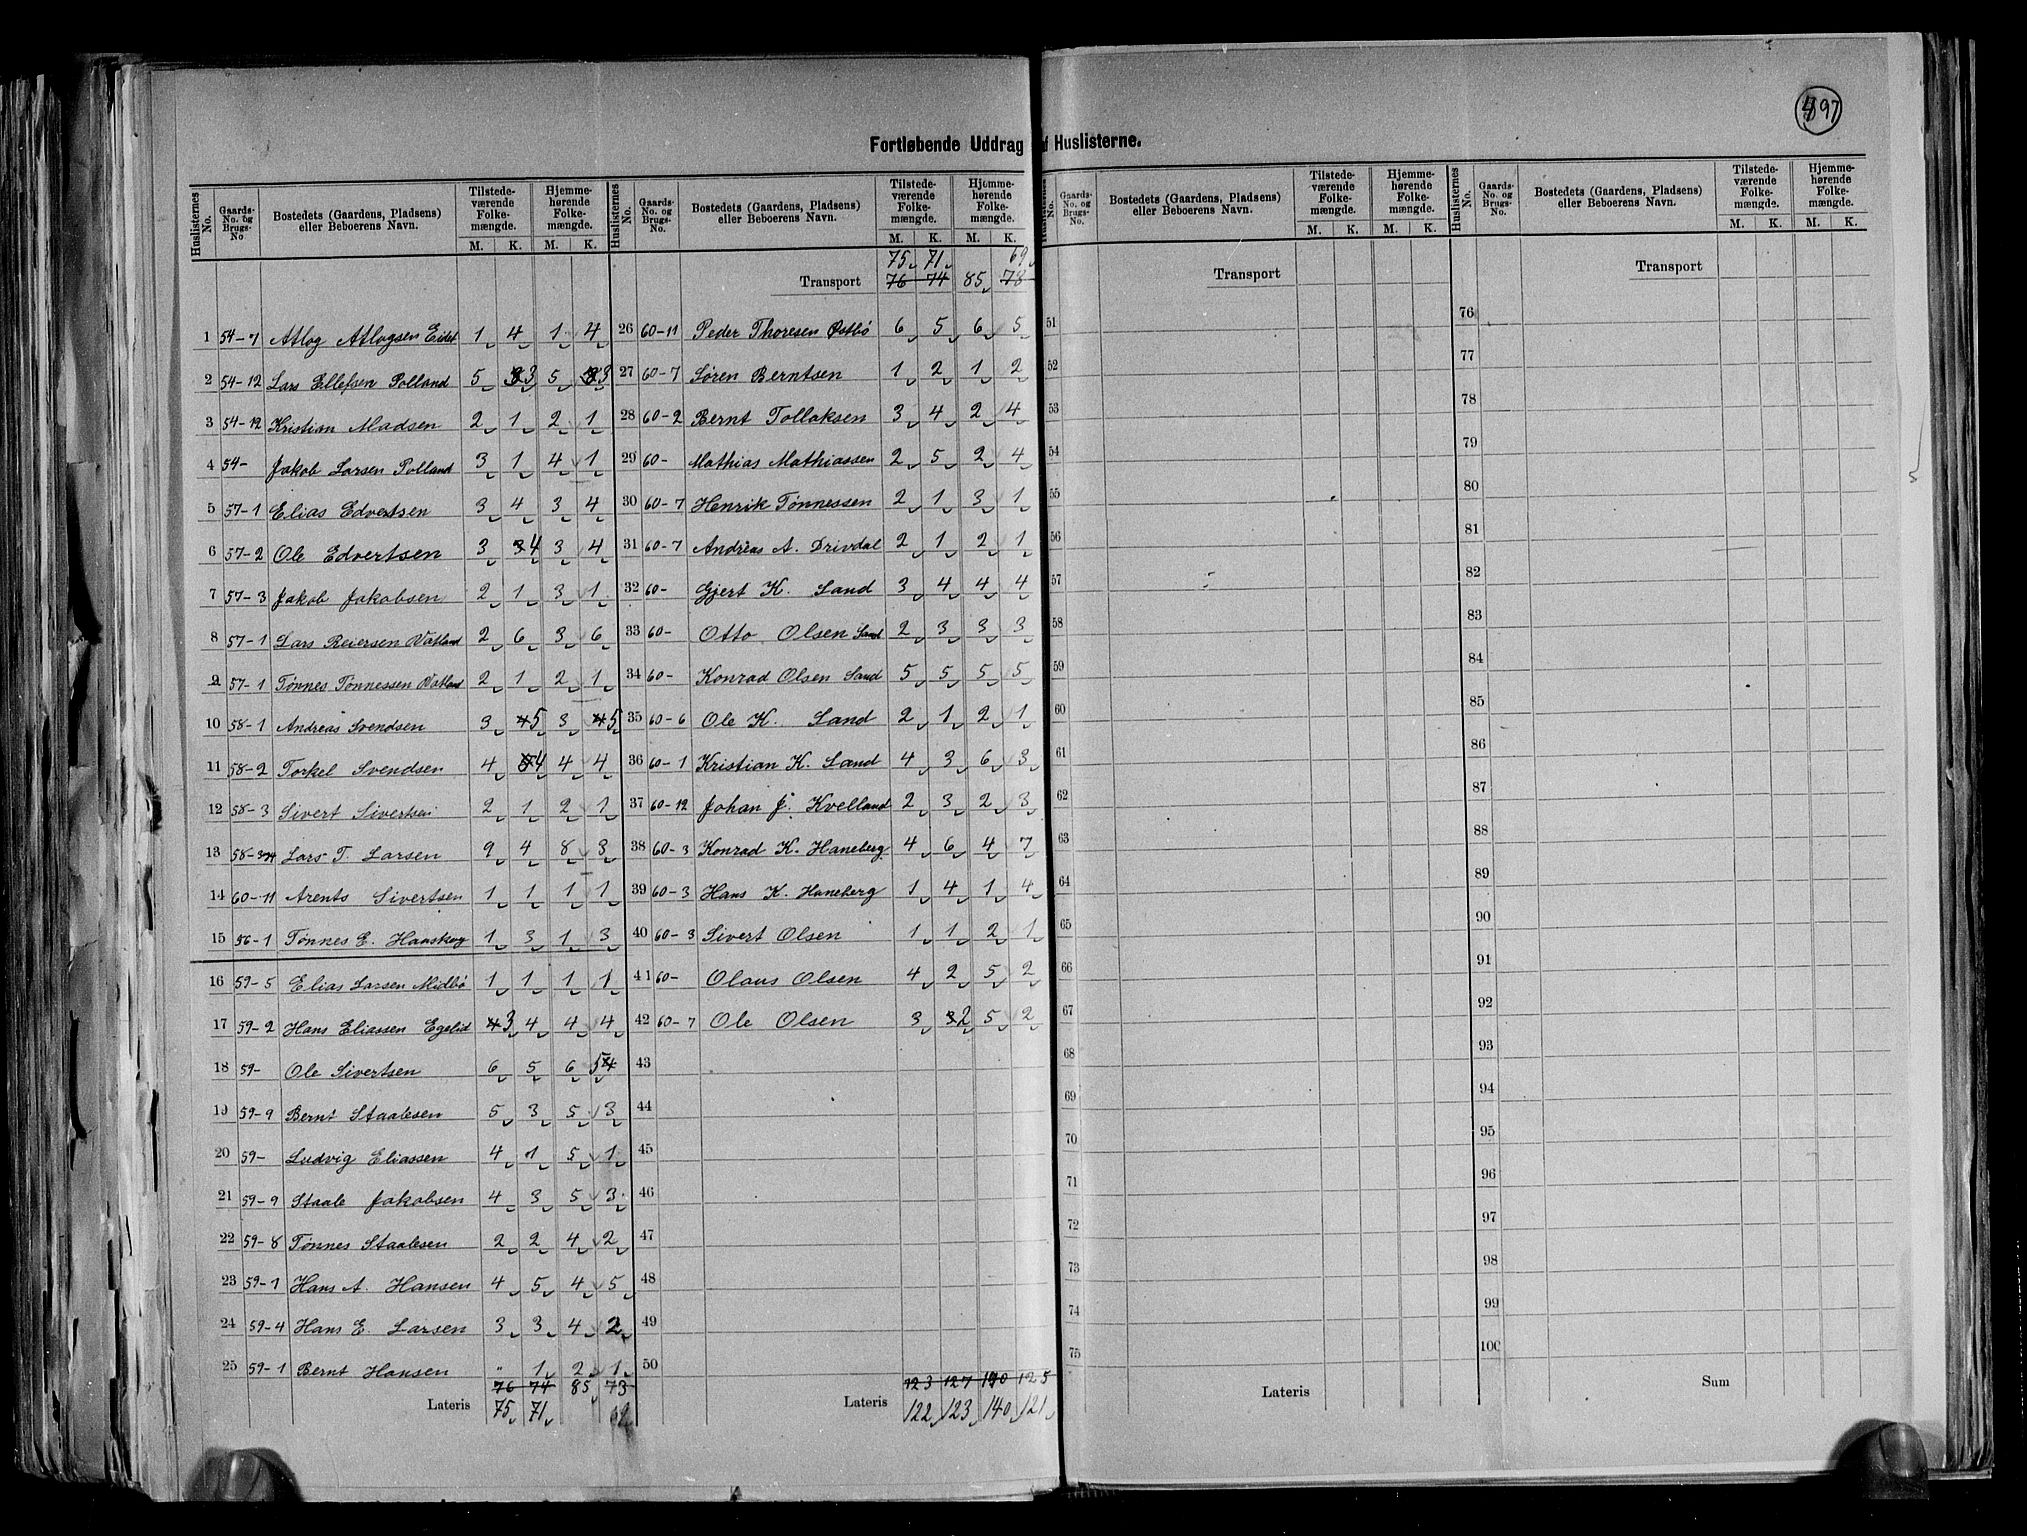 497
Fortløbende Uddrag af Huslisterne.
Huslisternes No. | Gaards-No. og Brugs-No | Bostedets (Gaardens, Pladsens) eller Beboerens Navn. | Tilstedeværende Folkemængde. M. K. | Hjemmehørende Folkemængde. M. K.
1 54-7 Atlog Atlogsen Eidet 1 4 1 4
2 54-12 Lars Ellefsen Polland 5 3 5 3
3 54-12 Kristian Madsen 2 1 2 1
4 54- Jakob Larsen Polland 3 1 4 1
5 57-1 Elias Edvertsen 3 4 3 4
6 57-2 Ole Edvertsen 3 3 4 3 4
7 57-3 Jakob Jakobsen 2 1 3 1
8 57-1 Lars Reiersen Vatland 2 6 3 6
9 57-1 Tønnes Tønnessen Vatland 2 1 2 1
10 58-1 Andreas Svendsen 3 4 5 3 4 5
11 58-2 Torkel Svendsen 4 4 4 4
12 58-3 Sivert Sivertsen 2 1 2 1
13 58-3 Lars T. Larsen 9 4 8 3
14 60-11 Arents Sivertsen 1 1 1 1
15 56-1 Tønnes E. Haaskog 1 3 1 3
16 59-5 Elias Larsen Midbø 1 1 1 1
17 59-2 Hans Eliassen Egelid 4 3 4 4 4
18 59- Ole Sivertsen 6 5 6 5 4
19 59-9 Bernt Staalesen 5 3 5 3
20 59- Ludvig Eliassen 4 1 5 1
21 59-9 Staale Jakobsen 4 3 5 3
22 59-8 Tønnes Staalesen 2 2 4 2
23 59-1 Hans A. Hansen 4 5 4 5
24 59-4 Hans E. Larsen 3 3 4 2
25 59-1 Bernt Hansen " 1 2 1
76 74 85 73
Lateris 75 71 69
Huslisternes No. | Gaards-No. og Brugs-No. | Bostedets (Gaardens, Pladsens) eller Beboerens Navn. | Tilstedeværende Folkemængde. M. K. | Hjemmehørende Folkemængde. M. K.
75 71 69
Transport 76 74 85 73
26 60-11 Peder Thoresen Østbø 6 5 6 5
27 60-7 Søren Berntsen 1 2 1 2
28 60-2 Bernt Tollaksen 3 4 2 4
29 60- Mathias Mathiassen 2 5 2 4
30 60-7 Henrik Tønnessen 2 1 3 1
31 60-7 Andreas A. Drivdal 2 1 2 1
32 60- Gjert K. Sand 3 4 4 4
33 60- Otto Olsen Sand 2 3 3 3
34 60- Konrad Olsen Sand 5 5 5 5
35 60-6 Ole K. Sand 2 1 2 1
36 60-1 Kristian K. Sand 4 3 6 3
37 60-12 Johan J. Kvelland 2 3 2 3
38 60-3 Konrad K. Haneberg 4 6 4 7
39 60-3 Hans K. Haneberg 1 4 1 4
40 60-3 Sivert Olsen 1 1 2 1
41 60- Olaus Olsen 4 2 5 2
42 60-7 Ole Olsen 3 3 2 5 2
43
44
45
46
47
48
49
50
123 127 140 125
Lateris 122 123 140 121
Gaards-No. og Brugs-No. | Bostedets (Gaardens, Pladsens) eller Beboerens Navn. | Tilstedeværende Folkemængde. M. K. | Hjemmehørende Folkemængde. M. K.
Transport
51
52
53
54
55
56
57
58
59
60
61
62
63
64
65
66
67
68
69
70
71
72
73
74
75
Lateris
Huslisternes No. | Gaards-No. og Brugs-No. | Bostedets (Gaardens, Pladsens) eller Beboerens Navn. | Tilstedeværende Folkemængde. M. K. | Hjemmehørende Folkemængde. M. K.
Transport
76
77
78
79
80
81
82
83
84
85
86
87
88
89
90
91
92
93
94
95
96
97
98
99
100
Sum